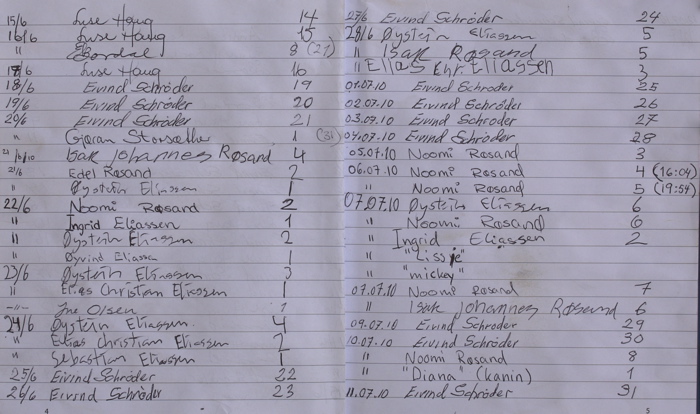 15/6 Luse Haug 14
16/6 Luse Haug 15
" 8 (21)
17/6 Luse Haug 16
18/6 Eivind Schrøder 19
19/6 Eivind Schrøder 20
20/6 Eivind Schrøder 21
" Gjøran Storsæther 1 (31)
21/6/10 Isak Johannes Røsand 4
21/6 Edel Røsand 2
" Øystein Eliassen 1
22/6 Noomi Røsand 2
" Ingrid Eliassen 1
" Øystein Eliassen 2
" Øyvind Eliassen 1
23/6 Øystein Eliassen 3
" Elias Christian Eliassen 1
-"- Ine Olsen 1
24/6 Øystein Eliassen 4
" Elias Christian Eliassen 2
" Sebastian Eliassen 1
25/6 Eivind Schrøder 22
26/6 Eivind Schrøder 23
4
27/6 Eivind Schrøder 24
28/6 Øystein Eliassen 5
" Isak Røsand 5
" Elias Chr. Eliassen 3
01.07.10 Eivind Schrøder 25
02.07.10 Eivind Schrøder 26
03.07.10 Eivind Schrøder 27
04.07.10 Eivind Schrøder 28
05.07.10 Noomi Røsand 3
06.07.10 Noomi Røsand 4 (16:04)
" Noomi Røsand 5 (19:54)
07.07.10 Øystein Eliassen 6
" Noomi Røsand 6
" Ingrid Eliassen 2
" "Lissje"
" "mickey"
07.07.10 Noomi Røsand 7
" Isak Johannes Røsand 6
09.07.10 Eivind Schrøder 29
10.07.10 Eivind Schrøder 30
" Noomi Røsand 8
" "Diana" (kanin) 1
11.07.10 Eivind Schrøder 31
5